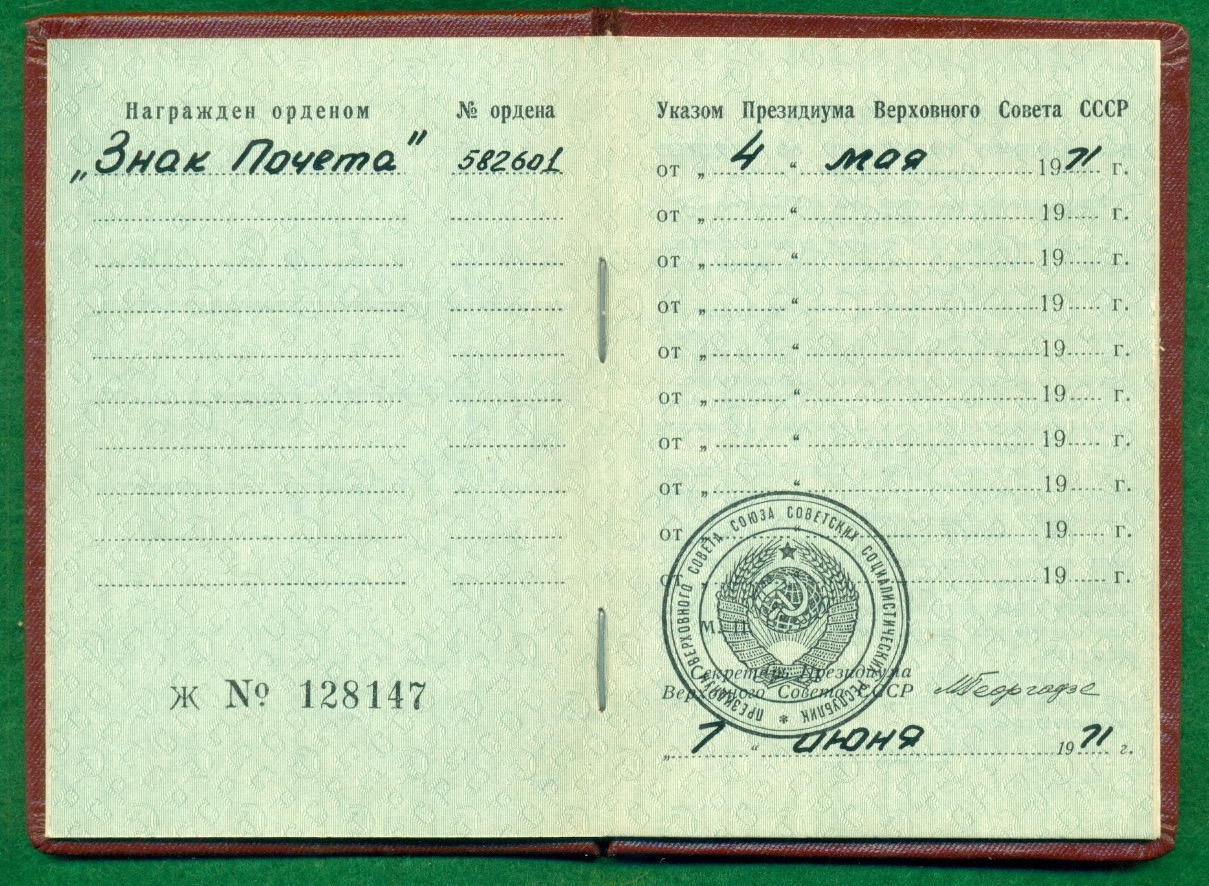 Награжден орденом № ордена
„Знак Почета" 582601
Ж № 128147
Указом Президиума Верховного Совета СССР
от „ 4 “ мая 1971 г.
от „ “ 19 г.
от „ “ 19 г.
от „ “ 19 г.
от „ “ 19 г.
от „ “ 19 г.
от „ “ 19 г.
от „ “ 19 г.
от „ “ 19 г.
от „ “ 19 г.
ПРЕЗИДИУМ ВЕРХОВНОГО СОВЕТА СОЮЗА СОВЕТСКИХ СОЦИАЛИСТИЧЕСКИХ РЕСПУБЛИК
М. П.
Секретарь Президиума
Верховного Совета СССР МГеоргадзе
„ 7 “ июня 1971 г.